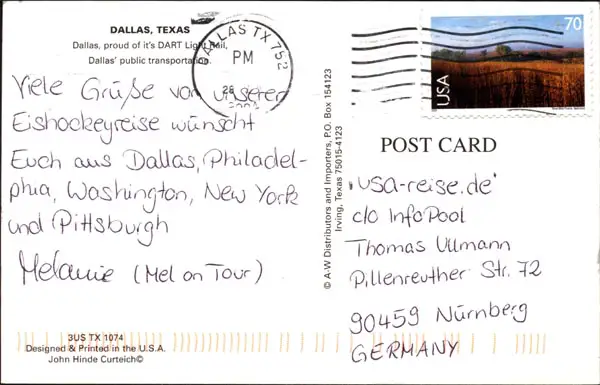 DALLAS, TEXAS
Dallas, proud of it's DART Light Rail,
Dallas' public transportation.
Viele Grüße von unserer
Eishockeyreise wünscht
Euch aus Dallas, Philadel-
phia, Washington, New York
und Pittsburgh
Melanie (Mel on Tour)
3US TX 1074
Designed & Printed in the U.S.A.
John Hinde Curteich©
© A-W Distributors and Importers, P.O. Box 154123
Irving, Texas 75015-4123
DALLAS TX 752
PM
26
70
USA
POST CARD
'usa-reise.de'
c/o InfoPool
Thomas Ullmann
Pillenreuther Str. 72
90459 Nürnberg
GERMANY